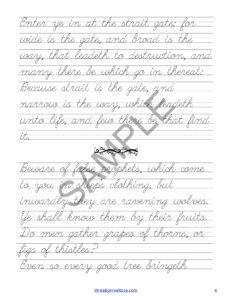 Enter ye in at the strait gate: for
wide is the gate, and broad is the
way, that leadeth to destruction, and
many there be which go in thereat:
Because strait is the gate, and
narrow is the way, which leadeth
unto life, and few there be that find
it.
SAMPLE
Beware of false prophets, which come
to you in sheeps clothing, but
inwardly they are ravening wolves.
Ye shall know them by their fruits.
Do men gather grapes of thorns, or
figs of thistles?
Even so every good tree bringeth
WriteBonnieRose.com